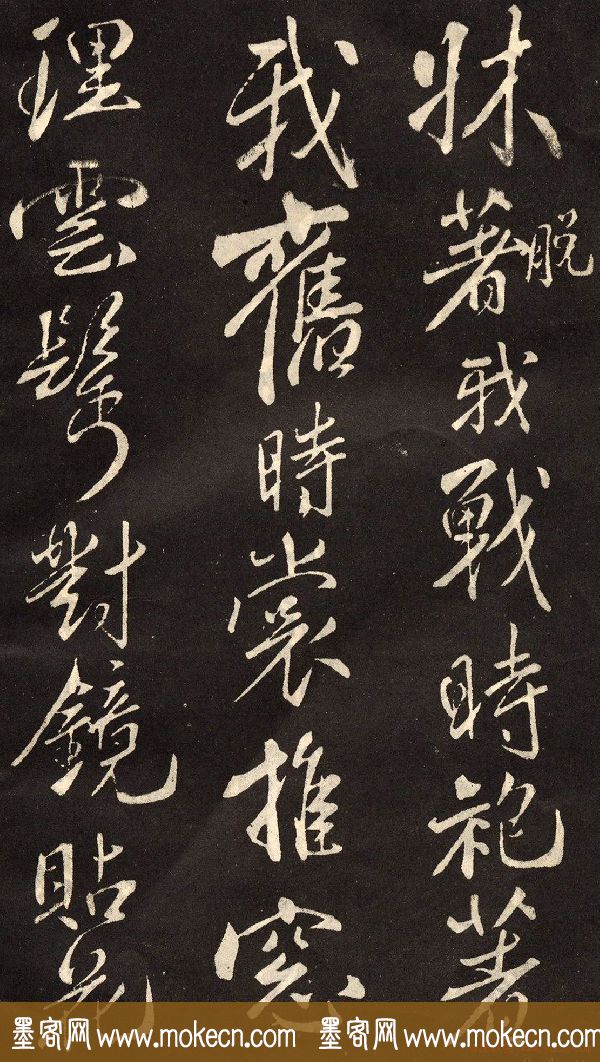 牀著脱我戰時袍著
我舊時裳推窓
理雲鬢對鏡貼花
墨客网 www.mokecn.com 墨客网 www.mokecn.com